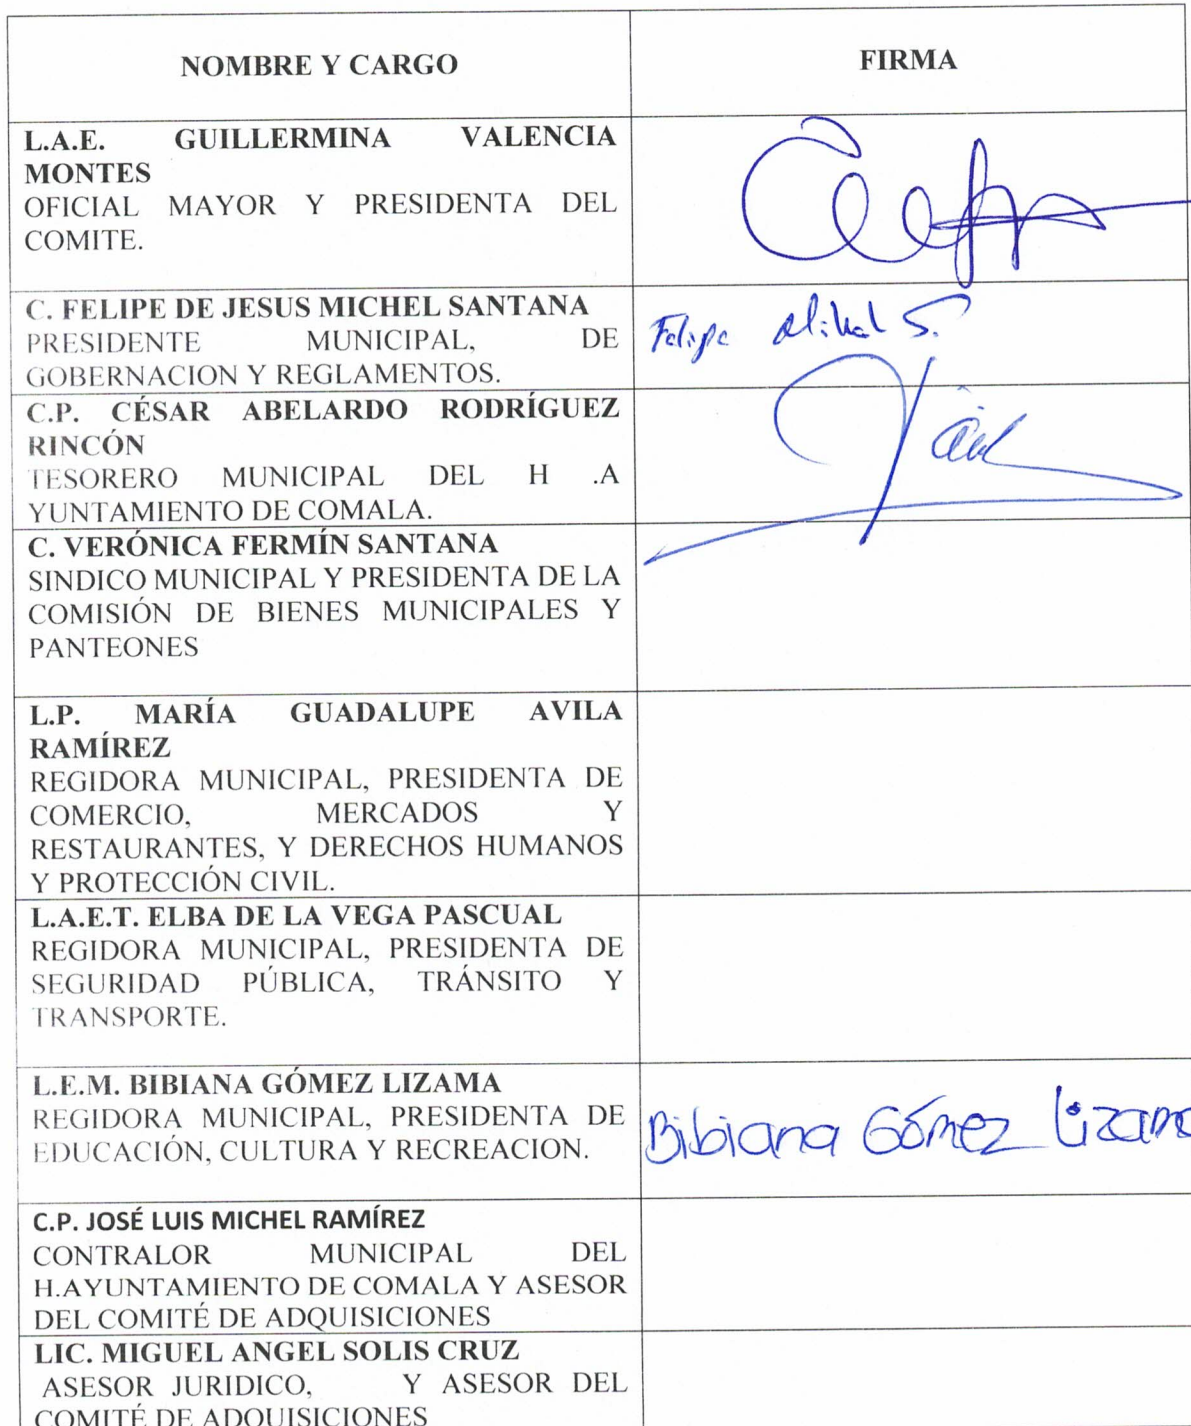 NOMBRE Y CARGO
FIRMA
L.A.E. GUILLERMINA VALENCIA
MONTES
OFICIAL MAYOR Y PRESIDENTA DEL
COMITE.
C. FELIPE DE JESUS MICHEL SANTANA
PRESIDENTE MUNICIPAL, DE
GOBERNACION Y REGLAMENTOS.
Felipe Michel S.
C.P. CÉSAR ABELARDO RODRÍGUEZ
RINCÓN
TESORERO MUNICIPAL DEL H .A
YUNTAMIENTO DE COMALA.
C. VERÓNICA FERMÍN SANTANA
SINDICO MUNICIPAL Y PRESIDENTA DE LA
COMISIÓN DE BIENES MUNICIPALES Y
PANTEONES
L.P. MARÍA GUADALUPE AVILA
RAMÍREZ
REGIDORA MUNICIPAL, PRESIDENTA DE
COMERCIO, MERCADOS Y
RESTAURANTES, Y DERECHOS HUMANOS
Y PROTECCIÓN CIVIL.
L.A.E.T. ELBA DE LA VEGA PASCUAL
REGIDORA MUNICIPAL, PRESIDENTA DE
SEGURIDAD PÚBLICA, TRÁNSITO Y
TRANSPORTE.
L.E.M. BIBIANA GÓMEZ LIZAMA
REGIDORA MUNICIPAL, PRESIDENTA DE
EDUCACIÓN, CULTURA Y RECREACION.
Bibiana Gómez Lizama
C.P. JOSÉ LUIS MICHEL RAMÍREZ
CONTRALOR MUNICIPAL DEL
H.AYUNTAMIENTO DE COMALA Y ASESOR
DEL COMITÉ DE ADQUISICIONES
LIC. MIGUEL ANGEL SOLIS CRUZ
ASESOR JURIDICO, Y ASESOR DEL
COMITÉ DE ADQUISICIONES